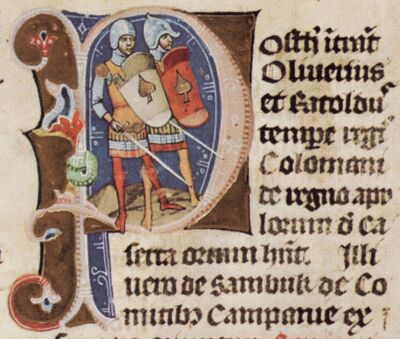 Oliuerius
et Ratoldū
tempe regí
Colomani
de regno apu
lorum d̄ ca
serta hn̄t. Illi
uero de Sambuk de Co
mitibꝰ Campanie ex